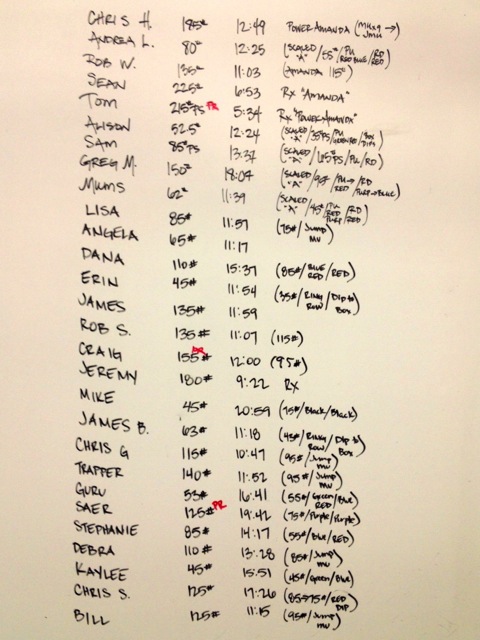 CHRIS H. 185# 12:49 POWER AMANDA (MUx9 → JMU)
ANDREA L. 80# 12:25 (SCALED "A"/55#/PU RED BLUE/RD RED)
ROB W. 135# 11:03 (AMANDA 115#)
SEAN 225# 6:53 RX "AMANDA"
TOM 215#PS PR 5:34 RX "POWER AMANDA"
ALISON 52.5# 12:24 (SCALED "A"/35#PS/PU GREEN RED/BOX DIPS)
SAM 85#PS 13:37 (SCALED "A"/65#PS/PU/RD)
GREG M. 150# 18:04 (SCALED "A"/95#/PU→/RD RED/PURP→BLUE)
MUMS 62# 11:39 (SCALED "A"/45#/PU RED PURP/RD RED)
LISA 85# 11:57 (75#/JUMP MU)
ANGELA 65# 11:17
DANA 110# 15:37 (85#/BLUE RED/RED)
ERIN 45# 11:54 (35#/RING ROW/DIP to BOX)
JAMES 135# 11:59
ROB S. 135# 11:07 (115#)
CRAIG 155# PR 12:00 (95#)
JEREMY 180# 9:22 RX
MIKE 45# 20:59 (75#/Black/Black)
JAMES B. 63# 11:18 (45#/RING ROW/DIP to BOX)
CHRIS G 115# 10:47 (95#/Jump MU)
TRAPPER 140# 11:52 (95#/Jump MU)
GURU 53# 16:41 (55#/Green RED/Blue)
SAER 125# PR 19:42 (75#/Purple/Purple)
STEPHANIE 85# 14:17 (55#/Blue/RED)
DEBRA 110# 13:28 (85#/Jump MU)
KAYLEE 45# 15:51 (45#/Green/Blue)
CHRIS S. 125# 17:26 (85→75#/RED DIP)
BILL 125# 11:15 (95#/Jump MU)